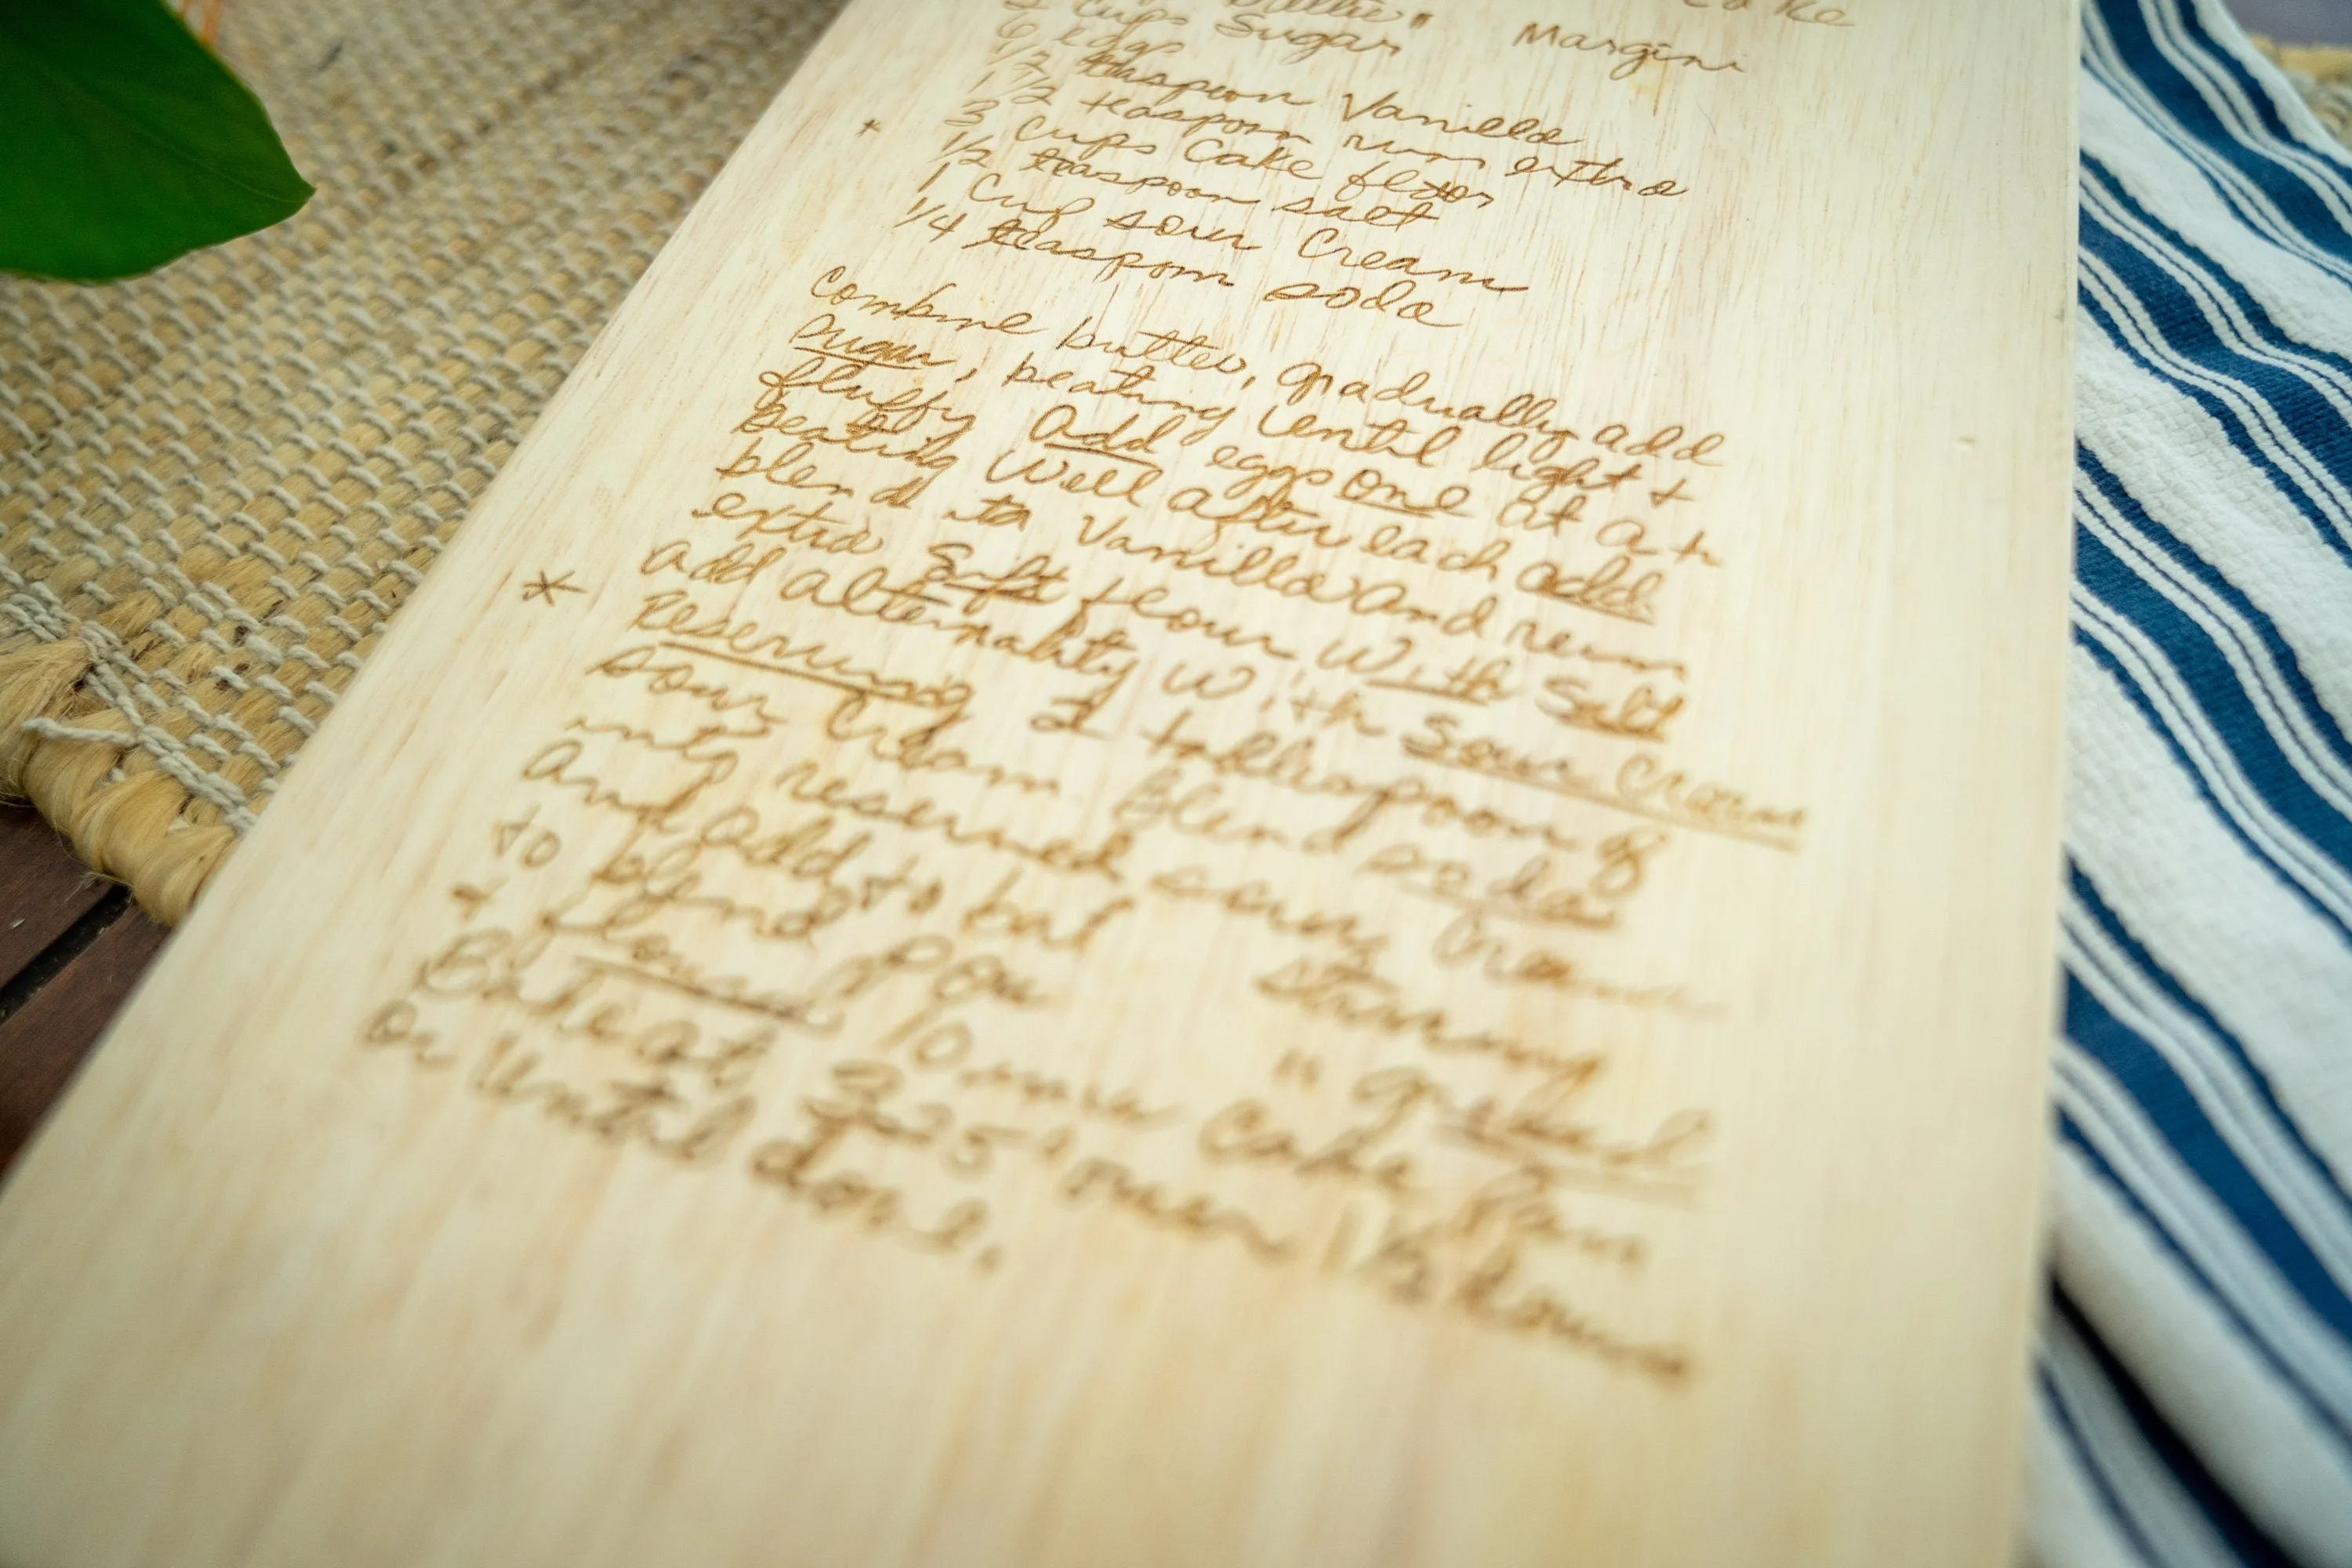 Cake
Butter" Margini
Cups Sugar
6 eggs
1/2 teaspoon Vanilla
1 1/2 teaspoon rum extra
* 3 Cups Cake flour
1/2 teaspoon salt
1 Cup sour Cream
1/4 teaspoon soda
Combine butter, gradually add
Sugar, beating until light +
fluffy Add eggs one at a
beating well after each add
blend Vanilla and rum
extra Sift flour With Salt
add alternality With Sour Cream
* Reserving tablespoon of
sour Cream Blend soda
into reserved sour Cream
And add to bat
to blend Pou
+ floured 10 Cake Pan
Bake at 325° oven 1 1/2 hour
or Until done.